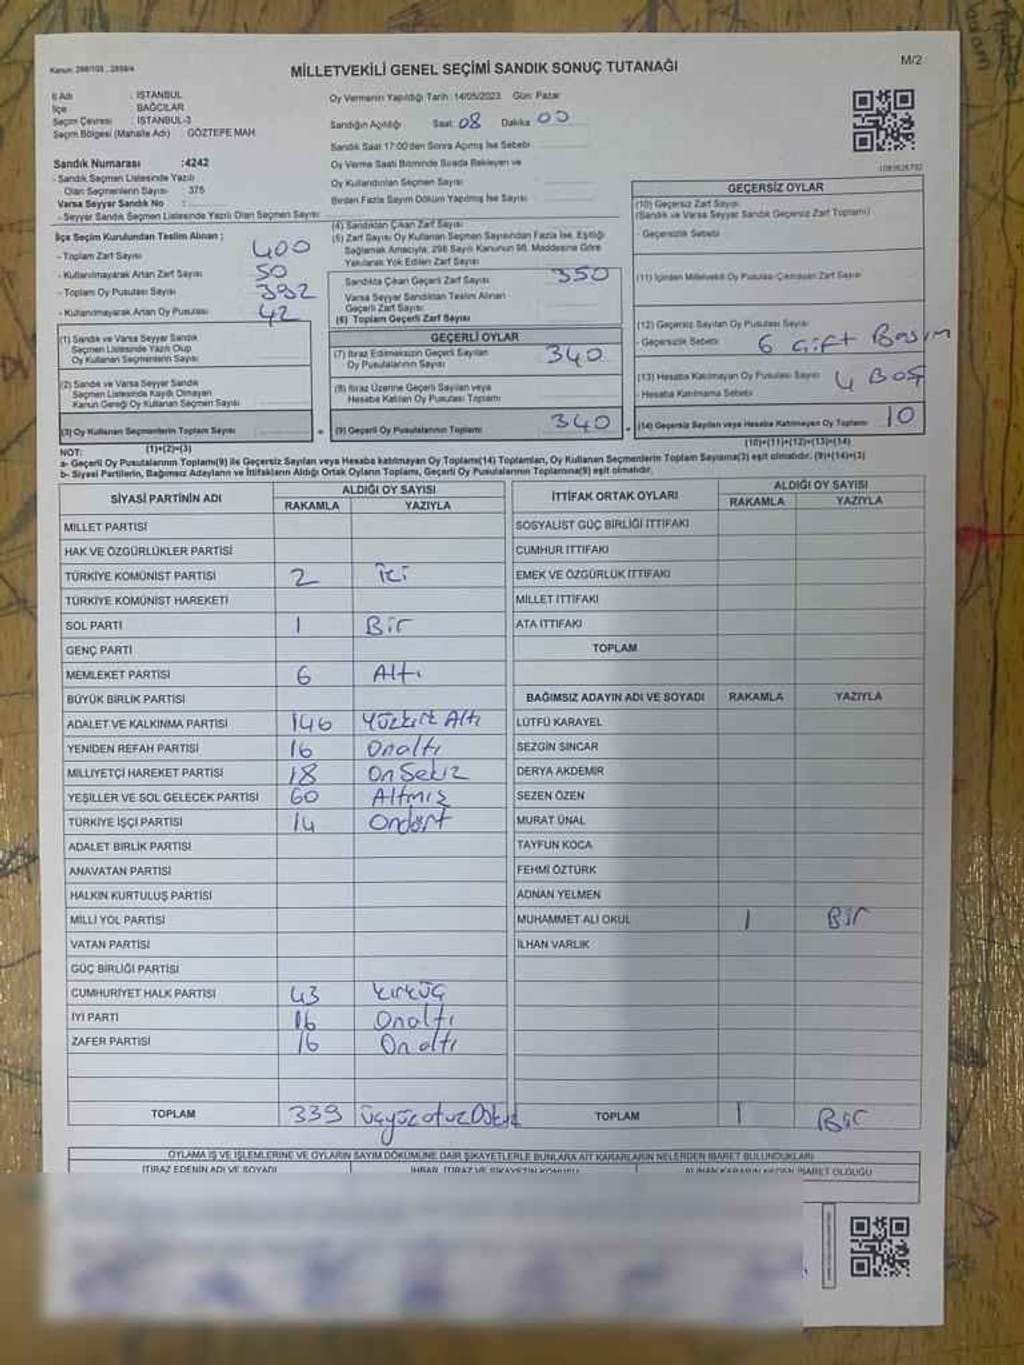 Kanun: 298/105 , 2839/4
MİLLETVEKİLİ GENEL SEÇİMİ SANDIK SONUÇ TUTANAĞI
M/2
İl Adı : İSTANBUL
İlçe : BAĞCILAR
Seçim Çevresi : İSTANBUL-3
Seçim Bölgesi (Mahalle Adı) : GÖZTEPE MAH
Sandık Numarası :4242
- Sandık Seçmen Listesinde Yazılı
Olan Seçmenlerin Sayısı : 375
Varsa Seyyar Sandık No :
- Seyyar Sandık Seçmen Listesinde Yazılı Olan Seçmen Sayısı
İlçe Seçim Kurulundan Teslim Alınan :
- Toplam Zarf Sayısı 400
- Kullanılmayarak Artan Zarf Sayısı 50
- Toplam Oy Pusulası Sayısı 392
- Kullanılmayarak Artan Oy Pusulası 42
(1) Sandık ve Varsa Seyyar Sandık
Seçmen Listesinde Yazılı Olup
Oy Kullanan Seçmenlerin Sayısı
(2) Sandık ve Varsa Seyyar Sandık
Seçmen Listesinde Kaydı Olmayan
Kanun Gereği Oy Kullanan Seçmen Sayısı
(3) Oy Kullanan Seçmenlerin Toplam Sayısı
(1)+(2)=(3)
Oy Vermenin Yapıldığı Tarih : 14/05/2023 Gün: Pazar
Sandığın Açıldığı Saat: 08 Dakika 00
Sandık Saat 17:00'den Sonra Açılmış İse Sebebi
Oy Verme Saati Bitiminde Sırada Bekleyen ve
Oy Kullandırılan Seçmen Sayısı
Birden Fazla Sayım Döküm Yapılmış İse Sayısı
(4) Sandıktan Çıkan Zarf Sayısı
(5) Zarf Sayısı Oy Kullanan Seçmen Sayısından Fazla İse, Eşitliği
Sağlamak Amacıyla, 298 Sayılı Kanunun 98. Maddesine Göre
Yakılarak Yok Edilen Zarf Sayısı
Sandıkta Çıkan Geçerli Zarf Sayısı 350
Varsa Seyyar Sandıktan Teslim Alınan
Geçerli Zarf Sayısı
(6) Toplam Geçerli Zarf Sayısı
GEÇERLİ OYLAR
(7) İtiraz Edilmeksizin Geçerli Sayılan
Oy Pusulalarının Sayısı 340
(8) İtiraz Üzerine Geçerli Sayılan veya
Hesaba Katılan Oy Pusulası Toplamı
(9) Geçerli Oy Pusulalarının Toplamı 340
1083626792
GEÇERSİZ OYLAR
(10) Geçersiz Zarf Sayısı
(Sandık ve Varsa Seyyar Sandık Geçersiz Zarf Toplamı)
- Geçersizlik Sebebi
(11) İçinden Milletvekili Oy Pusulası Çıkmayan Zarf Sayısı
(12) Geçersiz Sayılan Oy Pusulası Sayısı
- Geçersizlik Sebebi 6 Çift Basım
(13) Hesaba Katılmayan Oy Pusulası Sayısı 4 BOŞ
- Hesaba Katılmama Sebebi
(14) Geçersiz Sayılan veya Hesaba Katılmayan Oy Toplamı 10
(10)+(11)+(12)+(13)=(14)
NOT:
a- Geçerli Oy Pusulalarının Toplamı(9) ile Geçersiz Sayılan veya Hesaba katılmayan Oy Toplamı(14) Toplamları, Oy Kullanan Seçmenlerin Toplam Sayısına(3) eşit olmalıdır. (9)+(14)=(3)
b- Siyasi Partilerin, Bağımsız Adayların ve İttifakların Aldığı Ortak Oyların Toplamı, Geçerli Oy Pusulalarının Toplamına(9) eşit olmalıdır.
SİYASİ PARTİNİN ADI ALDIĞI OY SAYISI
RAKAMLA YAZIYLA
MİLLET PARTİSİ
HAK VE ÖZGÜRLÜKLER PARTİSİ
TÜRKİYE KOMÜNİST PARTİSİ 2 İki
TÜRKİYE KOMÜNİST HAREKETİ
SOL PARTİ 1 Bir
GENÇ PARTİ
MEMLEKET PARTİSİ 6 Altı
BÜYÜK BİRLİK PARTİSİ
ADALET VE KALKINMA PARTİSİ 146 Yüzkırk Altı
YENİDEN REFAH PARTİSİ 16 Onaltı
MİLLİYETÇİ HAREKET PARTİSİ 18 On Sekiz
YEŞİLLER VE SOL GELECEK PARTİSİ 60 Altmış
TÜRKİYE İŞÇİ PARTİSİ 14 Ondört
ADALET BİRLİK PARTİSİ
ANAVATAN PARTİSİ
HALKIN KURTULUŞ PARTİSİ
MİLLİ YOL PARTİSİ
VATAN PARTİSİ
GÜÇ BİRLİĞİ PARTİSİ
CUMHURİYET HALK PARTİSİ 43 kırküç
İYİ PARTİ 16 Onaltı
ZAFER PARTİSİ 16 On altı
TOPLAM 339 üçyüzotuz
İTTİFAK ORTAK OYLARI ALDIĞI OY SAYISI
RAKAMLA YAZIYLA
SOSYALİST GÜÇ BİRLİĞİ İTTİFAKI
CUMHUR İTTİFAKI
EMEK VE ÖZGÜRLÜK İTTİFAKI
MİLLET İTTİFAKI
ATA İTTİFAKI
TOPLAM
BAĞIMSIZ ADAYIN ADI VE SOYADI RAKAMLA YAZIYLA
LÜTFÜ KARAYEL
SEZGİN SİNCAR
DERYA AKDEMİR
SEZEN ÖZEN
MURAT ÜNAL
TAYFUN KOCA
FEHMİ ÖZTÜRK
ADNAN YELMEN
MUHAMMET ALİ OKUL 1 Bir
İLHAN VARLIK
TOPLAM 1 Bir
OYLAMA İŞ VE İŞLEMLERİNE VE OYLARIN SAYIM DÖKÜMÜNE DAİR ŞİKAYETLERLE BUNLARA AİT KARARLARIN NELERDEN İBARET BULUNDUKLARI
İTİRAZ EDENİN ADI VE SOYADI İHBAR, İTİRAZ VE ŞİKAYETİN KONUSU ALINAN KARARIN NEDEN İBARET OLDUĞU